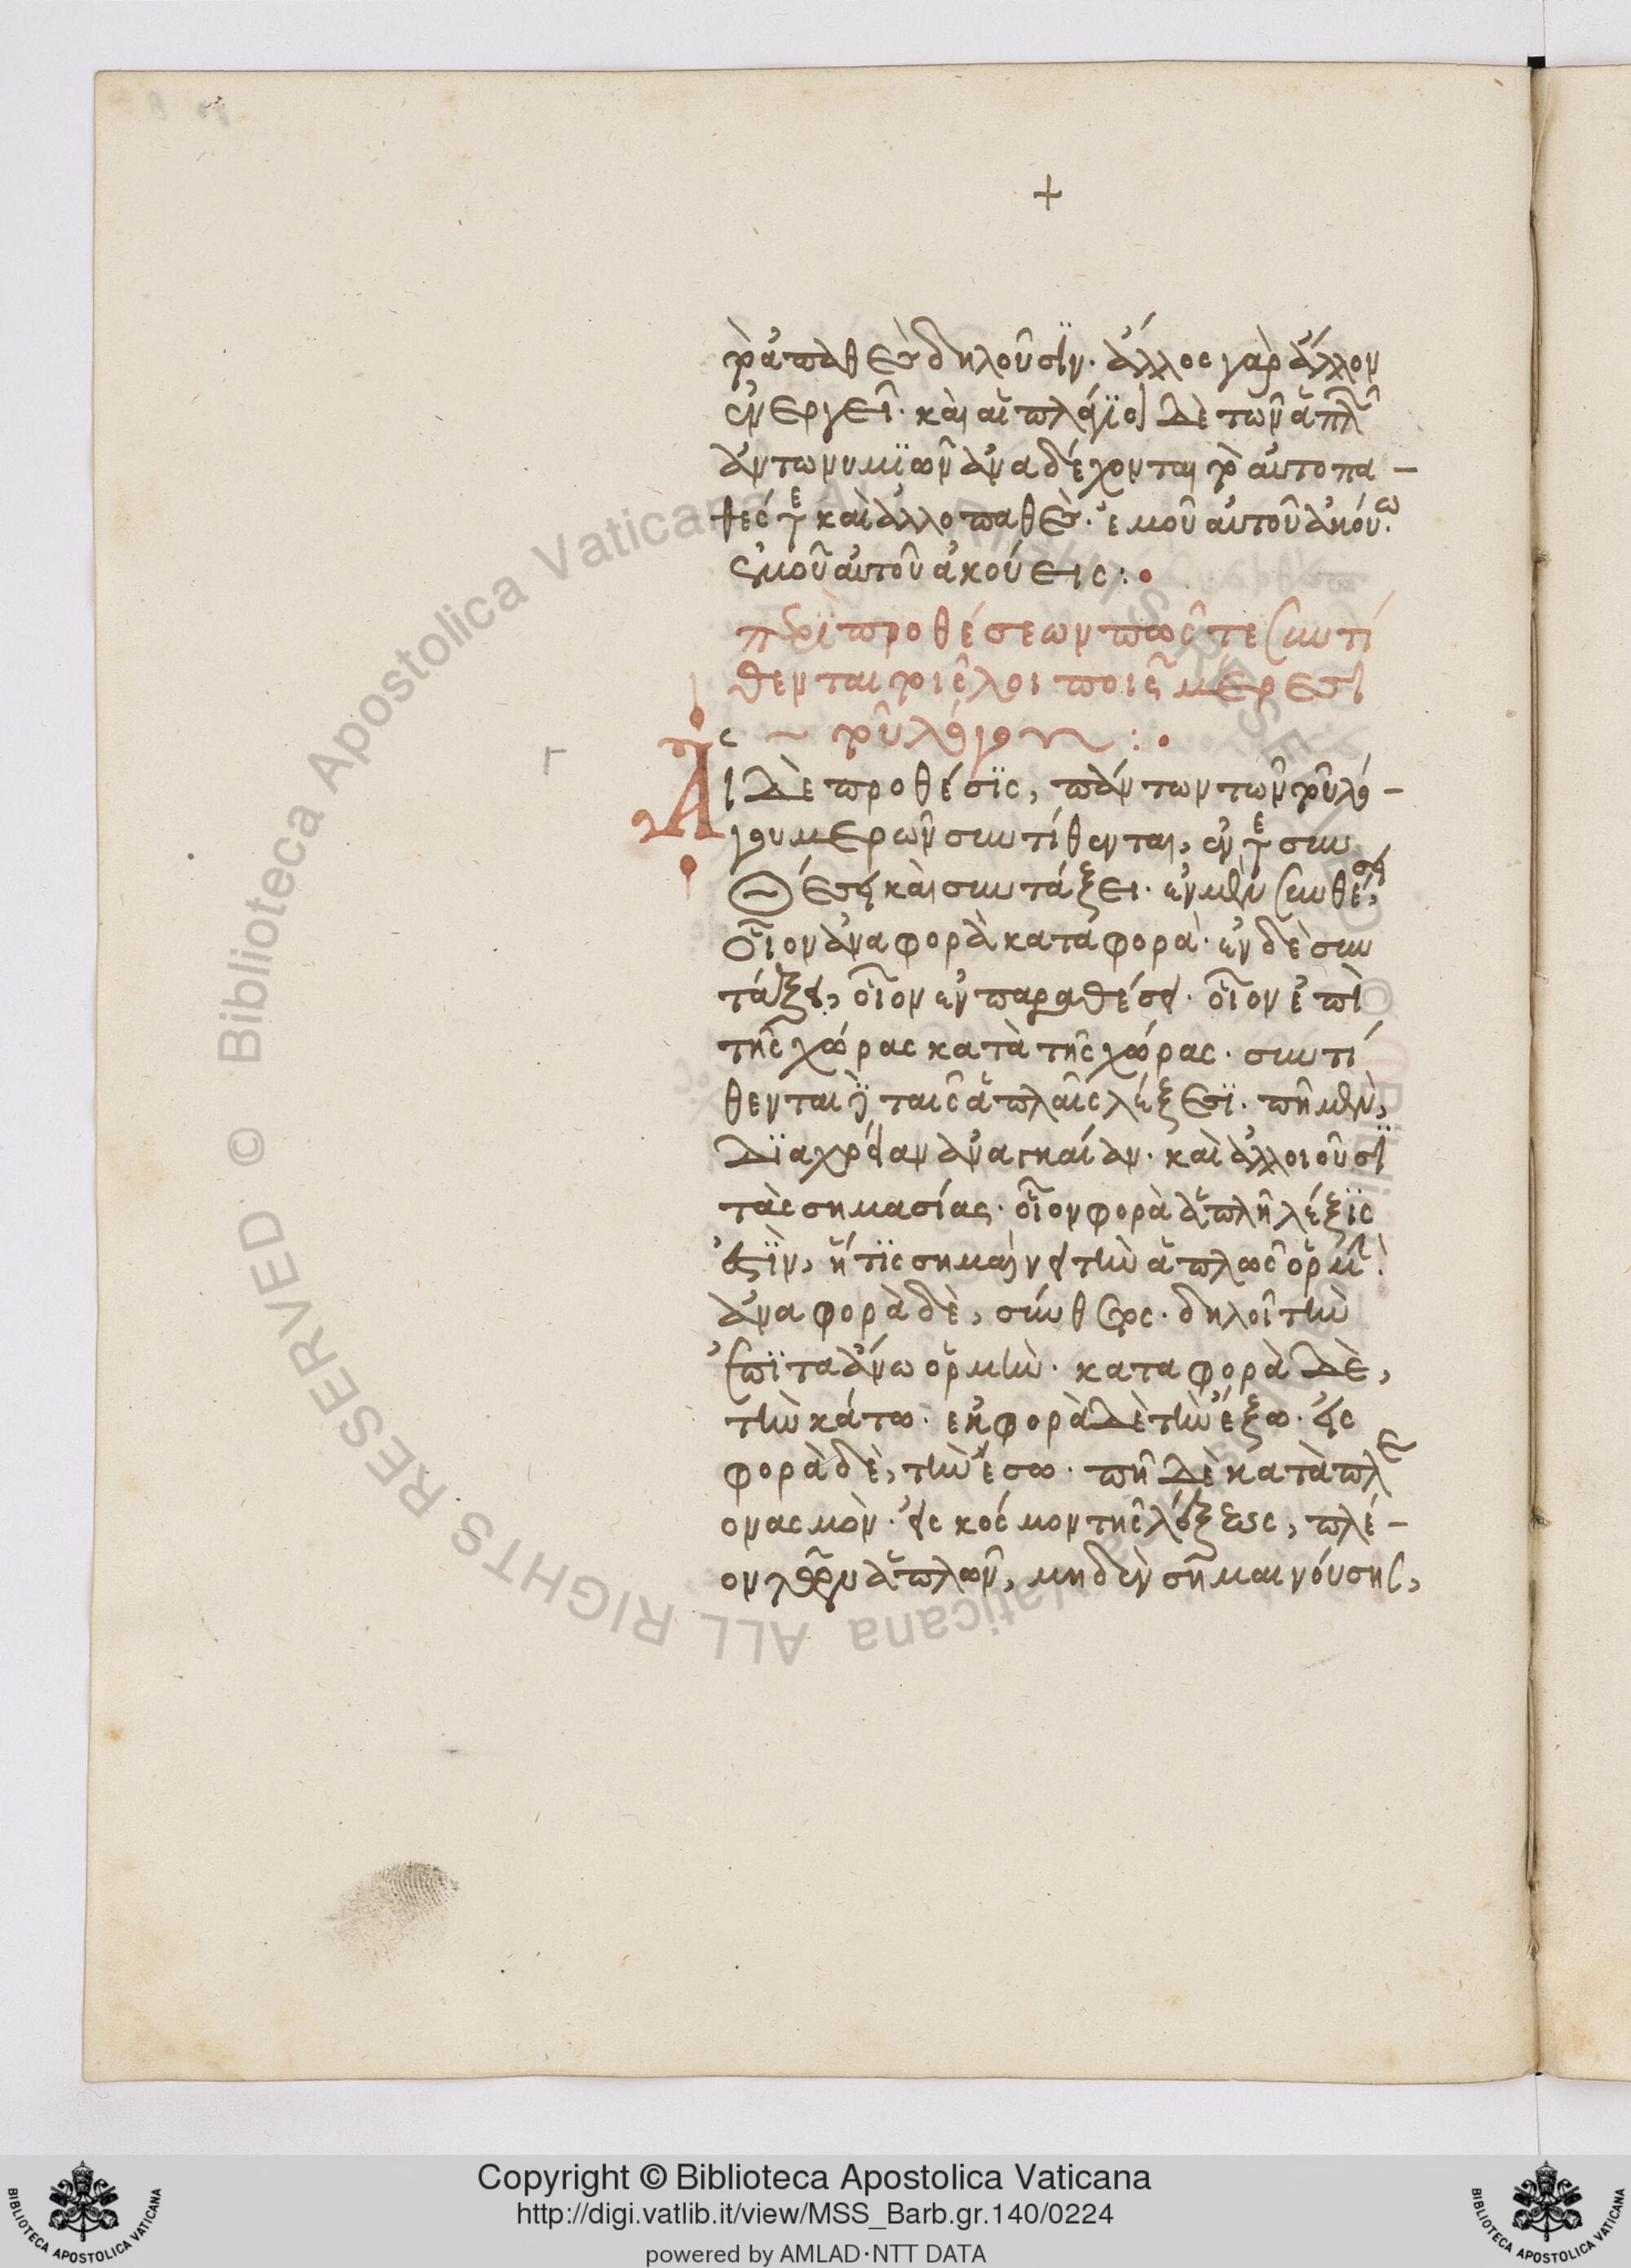 +
ρὰ ἀπαθὲς δηλοῦσϊν· ἄλλος γὰρ ἄλλον
ἐνεργεῖ· καὶ αἱ πλάγϊοι δὲ τῶν ἁπλ
ἀντωνυμϊῶν ἀναδέχονται τὸ αὐτοπα-
θές τε καὶ ἀλλοπαθὲς· ἐμοῦ αὐτοῦ ἀκούω·
ἐμοῦ αὐτοῦ ἀκούεις:•
περὶ προθέσεων πῶς τε συντί
θενται τοῖς λοιποῖς μέρεσι
τοῦ λόγου:•
Αἱ δὲ προθέσϊς, πάντων τῶν τοῦ λό-
γου μερῶν συντίθενται, ἐν τε συν
θέσει καὶ συντάξει· ἐν μὲν συνθέσει,
οἷον ἀναφορὰ καταφορὰ· ἐν δὲ συν
τάξει, οἷον ἐν παραθέσει· οἷον ἐπὶ
τῆς χώρας κατὰ τῆς χώρας· συντί
θενται ταῖς ἁπλαῖς λέξεσϊ· πῆ μὲν,
δϊα χρείαν ἀναγκαίαν· καὶ ἀλλοιοῦσϊ
τὰς σημασίας· οἷον φορὰ ἁπλῆ λέξϊς
ἐστϊν, ἥτϊς σημαίνει τὴν ἁπλῶς ὁρμ·
ἀναφορὰ δὲ, σύνθετος· δηλοῖ τὴν
ἐπϊ τὰ ἄνω ὁρμὴν· καταφορὰ δὲ,
τὴν κάτω· ἐκφορὰ δὲ τὴν ἔξω· εἰς
φορὰ δὲ, τὴν ἔσω· πῆ δὲ κατὰ πλε
ονασμὸν· εἰς κόσμον τῆς λέξεως, πλέ-
ον τῶν ἁπλῶν, μηδὲν σημαινούσης,
Copyright © Biblioteca Apostolica Vaticana
http://digi.vatlib.it/view/MSS_Barb.gr.140/0224
powered by AMLAD·NTT DATA
© Biblioteca Apostolica Vaticana ALL RIGHTS RESERVED
BIBLIOTECA APOSTOLICA VATICANA
BIBLIOTECA APOSTOLICA VATICANA